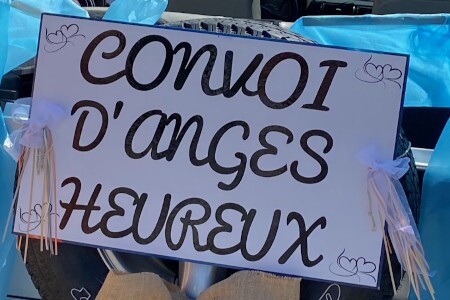 CONVOI
D'ANGES
HEUREUX